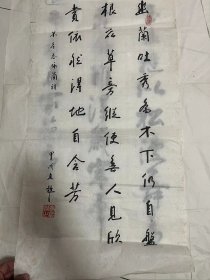 幽蘭吐秀喬木下仍自盤
根众草旁縱使無人見欣
賞依然得地自含芳
蘭詩
甲戌